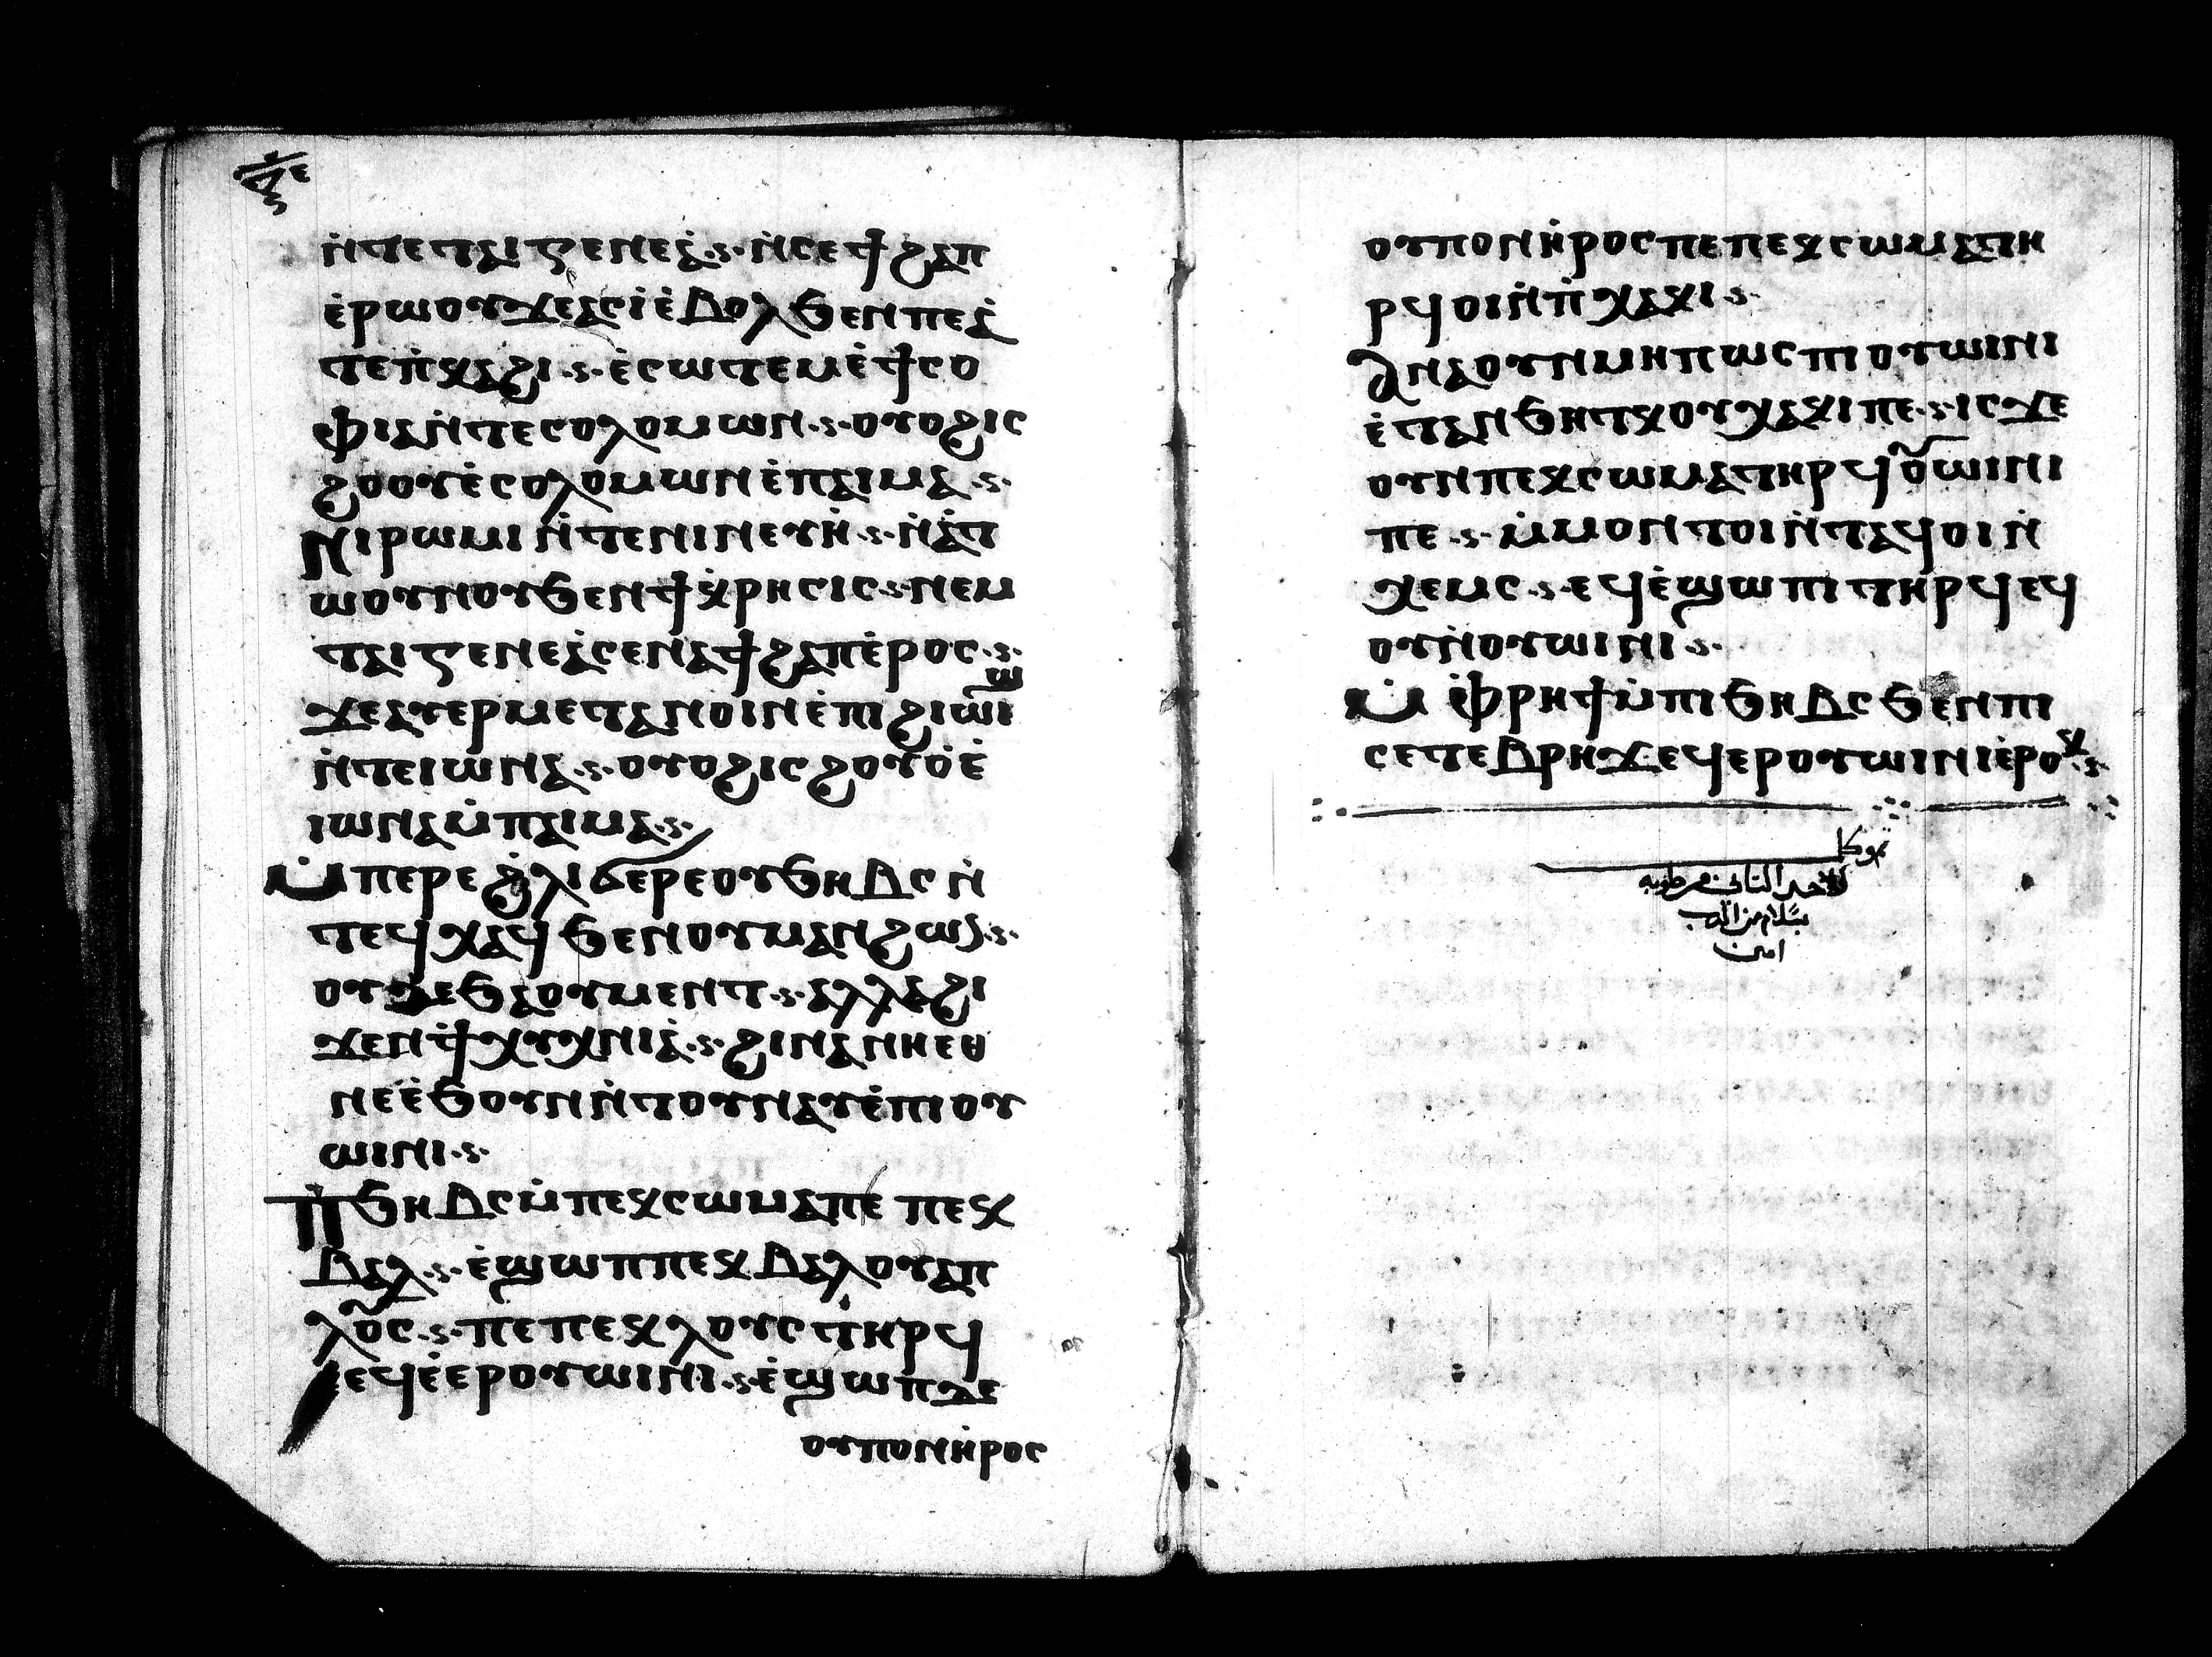 ⲛ̇ⲧⲉⲧⲁⲓⲅⲉⲛⲉⲁ̇ ⲛ̇ⲥⲉϯϩⲁⲡ
ⲉ̇ⲣⲱⲟⲩϫⲉⲁⲥⲓ̀ⲉ̇ⲃⲟⲗϧⲉⲛⲡⲉⲁ̇
ⲧⲉⲡ̇ⲭⲁϩⲓ ⲉ̇ⲥⲱⲧⲉⲙⲉ̇ϯⲥⲟ
ⲫⲓⲁⲛ̇ⲧⲉⲥⲟⲗⲟⲙⲱⲛ ⲟⲩⲟϩⲓⲥ
ϩⲟⲟⲩⲉ̇ⲥⲟⲗⲟⲙⲱⲛⲉ̇ⲡⲁⲓⲙⲁ
ⲛⲓⲣⲱⲙⲓⲛ̇ⲧⲉⲛⲓⲛⲉⲩⲏ̇ ⲛ̇ⲁⲧ
ⲱⲟⲩⲛⲟⲩϧⲉⲛϯⲭ̇ⲣⲏⲥⲓⲥ ⲛⲉⲙ
ⲧⲁⲓⲅⲉⲛⲉⲁ̇ⲥⲉⲛⲁϯϩⲁⲡⲉ̇ⲣⲟⲥ
ϫⲉⲁⲩⲉⲣⲙⲉⲧⲁⲛⲟⲓⲛⲉ̇ⲡⲓϩⲓⲱⲓϣ
ⲛ̇ⲧⲉⲓⲱⲛⲁ ⲟⲩⲟϩⲓⲥϩⲟⲩⲟ̇ⲉ̇
ⲓⲱⲛⲁⲙ̇ⲡⲁⲓⲙⲁ
ⲙ̇ⲡⲉⲣⲉϩ̇ⲗⲓϭⲉⲣⲉⲟⲩϧⲏⲃⲥⲛ̇
ⲧⲉϥⲭⲁϥϧⲉⲛⲟⲩⲙⲁⲛϩⲱⲡ
ⲟⲩⲇⲉϧⲁⲟⲩⲙⲉⲛⲧ ⲁⲗⲗⲁϩⲓ
ϫⲉⲛϯⲗⲩⲭⲛⲓⲁ̇ ϩⲓⲛⲁⲛⲏⲉⲑ
ⲛⲉⲉ̇ϧⲟⲩⲛⲛ̇ⲧⲟⲩⲛⲁⲩⲉ̇ⲡⲓⲟⲩ
ⲱⲓⲛⲓ
ⲡ̇ϧⲏⲃⲥⲙ̇ⲡⲉⲕⲥⲱⲙⲁⲡⲉ ⲡⲉⲕ
ⲃⲁⲗ ⲉ̇ϣⲱⲡⲡⲉⲕⲃⲁⲗⲟⲩⲁⲡ
ⲗⲟⲩⲥ ⲡⲉⲡⲉⲕⲗⲟⲩⲥⲧⲏⲣϥ
ⲉϥⲉ̇ⲉⲣⲟⲩⲱⲓⲛⲓ ⲉ̇ϣⲱⲡⲇⲉ
ⲟⲩⲡⲟⲛⲏ̇ⲣⲟⲥ
ⲟⲩⲡⲟⲛⲏ̇ⲣⲟⲥⲡⲉⲡⲉⲕⲥⲱⲙⲁⲧⲏ
ⲣϥⲟⲓⲛ̇ⲡ̇ⲭⲁⲕⲓ
ⲁⲛⲁⲟⲩⲛⲙⲏⲡⲱⲥⲡⲓⲟⲩⲱⲓⲛⲓ
ⲉ̇ⲧⲁⲛϧⲏⲧⲕⲟⲩⲭⲁⲕⲓⲡⲉ ⲓⲥϫⲉ
ⲟⲩⲛⲡⲉⲕⲥⲱⲙⲁⲧⲏⲣϥⲟⲩⲱⲓⲛⲓ
ⲡⲉ ⲙ̇ⲙⲟⲛⲧⲟⲓⲛ̇ⲧⲁϥⲟⲓⲛ̇
ⲭⲉⲙⲥ ⲉϥⲉ̇ϣⲱⲡⲓⲧⲏⲣϥⲉϥ
ⲟⲩⲛ̇ⲟⲩⲱⲓⲛⲓ
ⲙ̇ⲉ̇ⲫⲣⲏϯⲙ̇ⲡⲓϧⲏⲃⲥϧⲉⲛⲡⲓ
ⲥⲉⲧⲉⲃⲣⲏϫⲉϥⲉⲣⲟⲩⲱⲓⲛⲓⲉ̇ⲣⲟⲕ
الاحد الثاني من طوبه
بسلام من الرب
امين